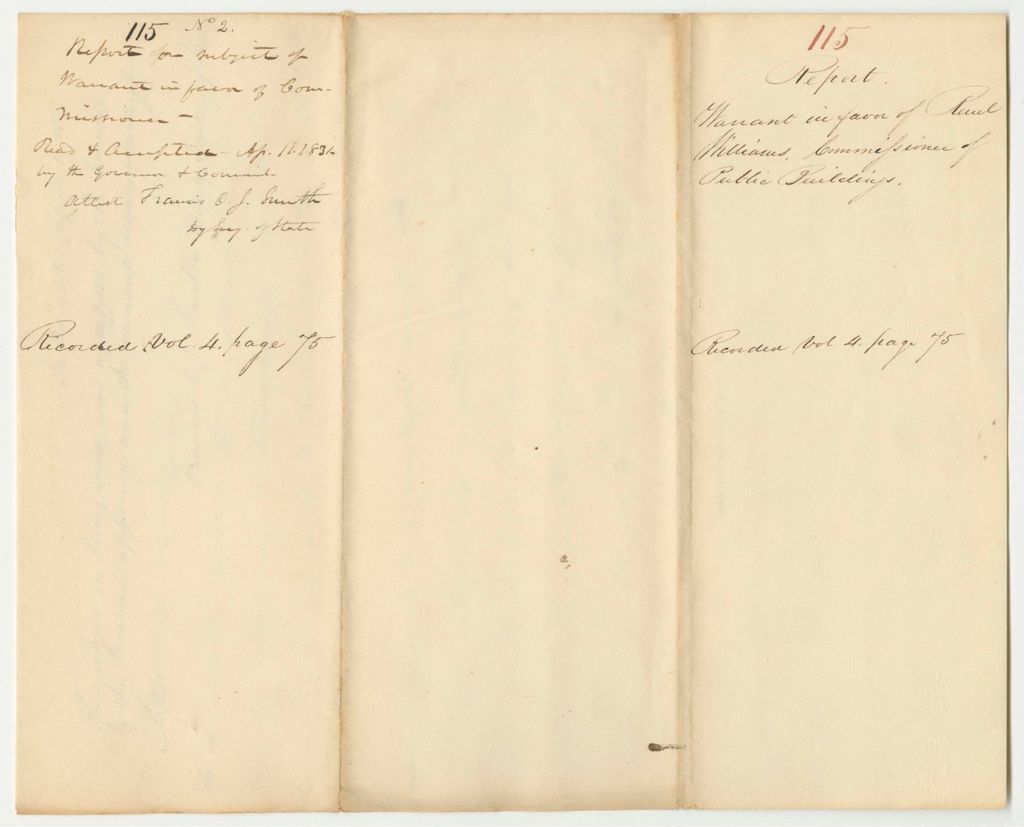 115 No 2.
Report on subject of
Warrant in favor of Com-
missioner -
Read & Accepted - Ap. 11. 1831
by the Governor & Council
Attest Francis O. J. Smith
Dy Secy. of State
Recorded Vol. 4. page 75
115
Report.
Warrant in favor of Reuel
Williams, Commissioner of
Public Buildings.
Recorded Vol 4. page 75